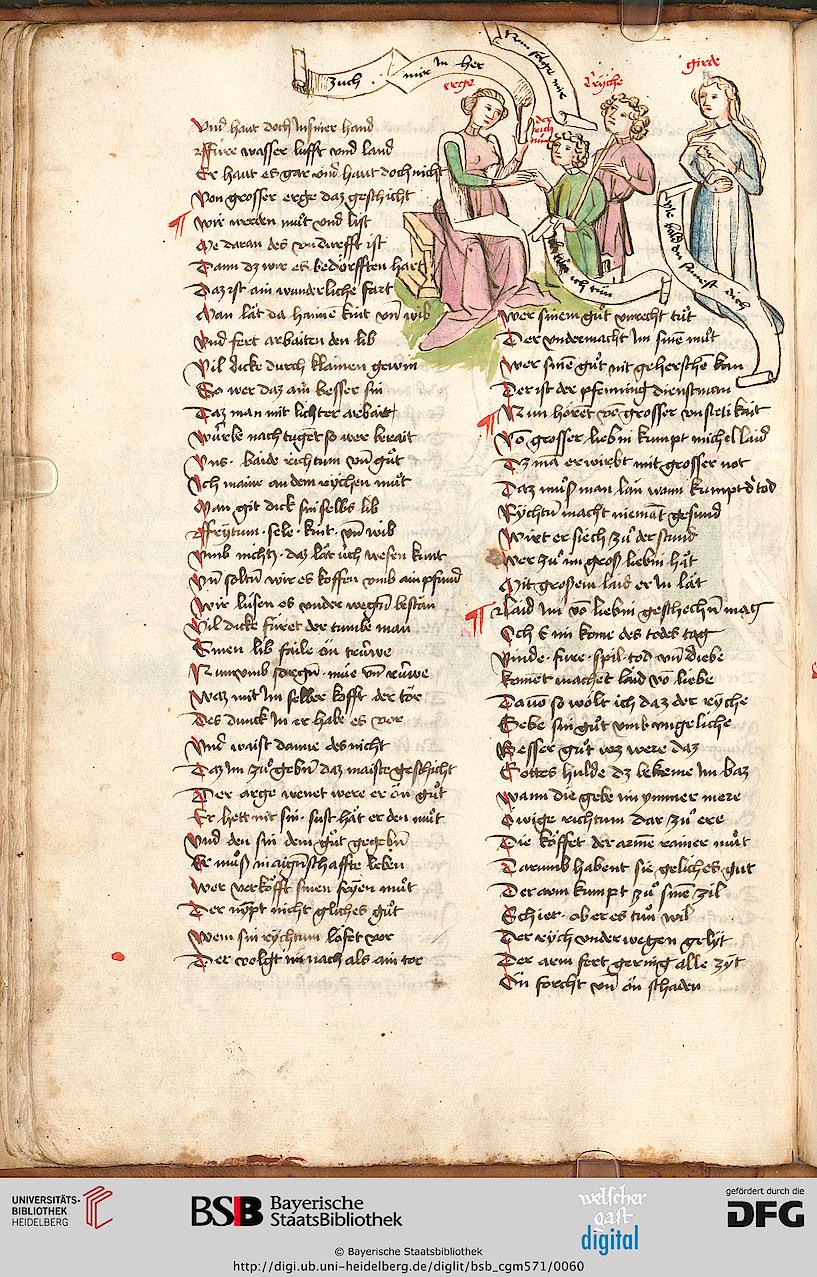 zuch mir in her
kom folge mir
erge
der rich man
Rÿche
girde
wie bald du sumest dich
ich tun
Vnd haut doch in siner hand
Fúre wasser lufft vnd land
Er haut es gar vnd haut doch nicht
Von grosser erge daz geschicht
wir werden muͦt vnd list
Me daran des vndurfft ist
Dann dz wir es bedorfften hart
Daz ist ain wunderliche fart
Man lät da haime kint vn̄ wib
Vnd fert arbaiten den lib
Vil dicke durch klainen gewin
So wer daz ain besser sin
Daz man mit lichter arbait
Wúrbe nach tugent so wer berait
Vns baide richtum vn̄ guͦt
Ich maine an dem rÿchen muͦt
Man git dick sin selbs lib
Frÿtum sele kint vn̄ wib
Vmb nicht daz lät úch wesen kunt
Vn̄ soltn̄ wir es koffen vmb ain pfund
Wir liesen es vnder wegn̄ bestan
Vil dicke fúret der tumbe man
Sinen lib faile ön trúwe
Nun vmb sorgen múe vn̄ rúwe
Waz mit im selber kofft der tor
Des dunck in er habe es vor
Vnd waist danne des nicht
Daz im zuͦ gebn̄ daz maiste geschicht
Der arge wenet were er ön guͦt
Er hett nit sin sust hät er den muͦt
Vnd den sin dem guͦt gegebn̄
Er muͦß in aigenschaffte leben
Wer verkofft sinen frÿen muͦt
Der nÿpt nicht gliches guͦt
Wem sin rÿchtum lofet vor
Der volgt im nach als ain tor
Wer sinem guͦt vnrecht tuͦt
Der vndermacht im sinē muͦt
Wer sinē guͦt nit geherschē kan
Der ist der pfenning dienstman
Nun hörent von grosser vnstetikait
Vō grosser liebin kumpt michel laid
Dz mā erwirbt mit grosser not
Daz muͦß man lan wann kumpt d' tod
Rÿchtū macht niemāt gesund
Wirt er siech zuͦ der stund
Wer zuͦ im groß liebin hät
Mit großem laid er in lät
Laid im vō liebin geschechn̄ mag
Och E im kome des todes tag
Vinde fúre spil tod vn̄ diebe
Koment machet laid vō liebe
Dauō so wölt ich daz der rÿche
Gebe sin guͦt vmb vngeliche
Besser guͦt waz were daz
Gottes hulde dz bekeme im baz
Wann die gebe im ÿmmer mere
Ewige richtum dar zuͦ ere
Die köffet der armē rainer muͦt
Darumb habent sie geliches guͦt
Der arm kumpt zuͦ sinē zil
Schier ob er es tuͦn wil
Der rÿch vnderwegen gelÿt
Der arm fert gering alle zÿt
Ön forcht vn̄ ön schaden
UNIVERSITÄTS-
BIBLIOTHEK
HEIDELBERG
BSB Bayerische
StaatsBibliothek
welscher
gast
digital
gefördert durch die
DFG
© Bayerische Staatsbibliothek
http://digi.ub.uni-heidelberg.de/diglit/bsb_cgm571/0060